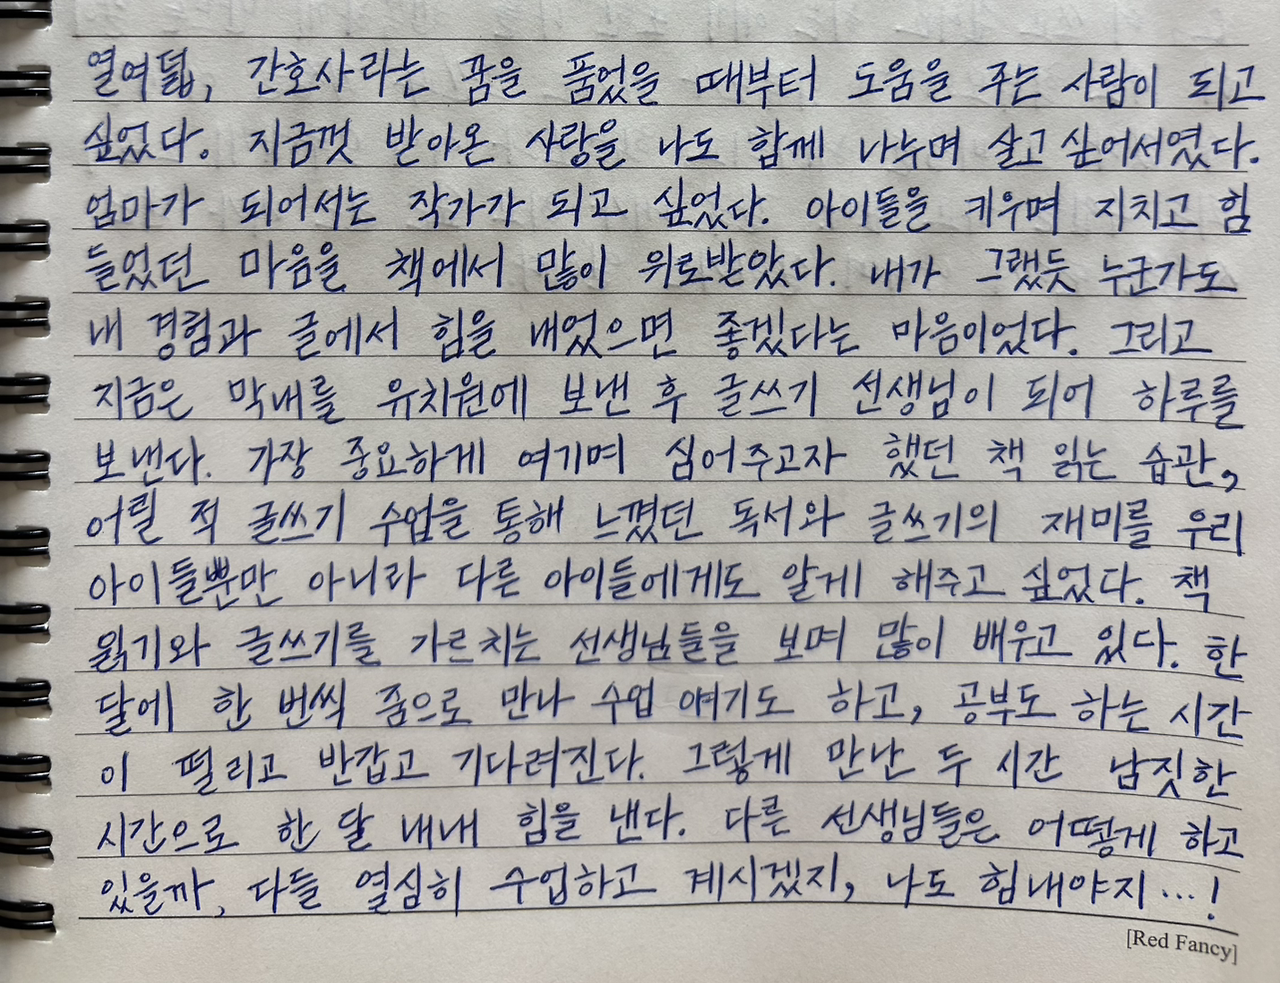 열여덟, 간호사라는 꿈을 품었을 때부터 도움을 주는 사람이 되고
싶었다. 지금껏 받아온 사랑을 나도 함께 나누며 살고 싶어서였다.
엄마가 되어서는 작가가 되고 싶었다. 아이들을 키우며 지치고 힘
들었던 마음을 책에서 많이 위로받았다. 내가 그랬듯 누군가도
내 경험과 글에서 힘을 내었으면 좋겠다는 마음이었다. 그리고
지금은 막내를 유치원에 보낸 후 글쓰기 선생님이 되어 하루를
보낸다. 가장 중요하게 여기며 심어주고자 했던 책 읽는 습관,
어릴 적 글쓰기 수업을 통해 느꼈던 독서와 글쓰기의 재미를 우리
아이들뿐만 아니라 다른 아이들에게도 알게 해주고 싶었다. 책
읽기와 글쓰기를 가르치는 선생님들을 보며 많이 배우고 있다. 한
달에 한 번씩 줌으로 만나 수업 얘기도 하고, 공부도 하는 시간
이 떨리고 반갑고 기다려진다. 그렇게 만난 두 시간 남짓한
시간으로 한 달 내내 힘을 낸다. 다른 선생님들은 어떻게 하고
있을까, 다들 열심히 수업하고 계시겠지, 나도 힘내야지…!
[Red Fancy]